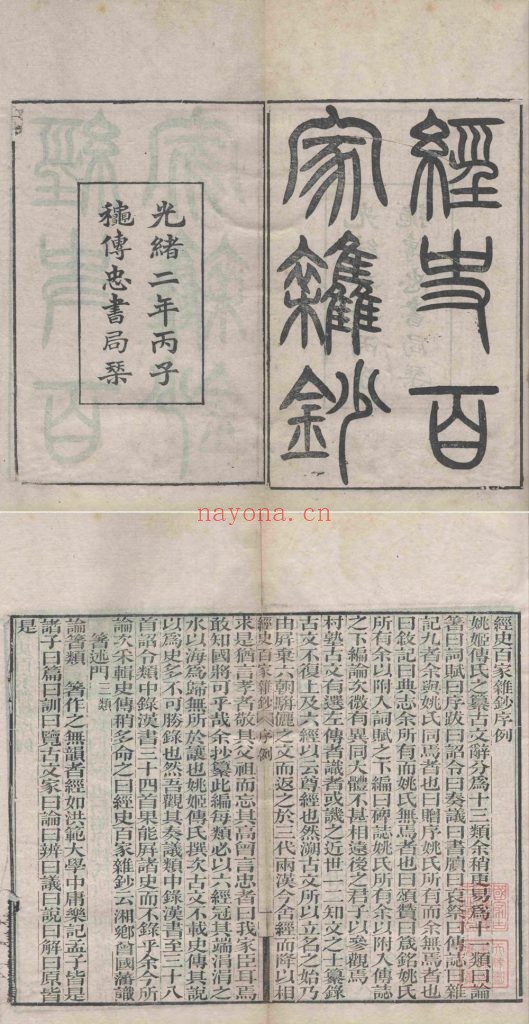 經史百
家雜鈔
光緒二年丙子
穐傳忠書局栞
nayona.cn
經史百家雜鈔序例
姚姬傳氏之纂古文辭分爲十三類余稍更易爲十一類曰論
箸曰詞賦曰序跋曰詔令曰奏議曰書牘曰哀祭曰傳誌曰雜
記九者余與姚氏同焉者也曰贈序姚氏所有而余無焉者也
曰敘記曰典志余所有而姚氏無焉者也曰頌贊曰箴銘姚氏
所有余以附入詞賦之下編曰碑誌姚氏所有余以附入傳誌
之下編論次微有異同大體不甚相遠後之君子以參觀焉
村塾古文有選左傳者識者或譏之近世一二知文之士纂錄
古文不復上及六經以云尊經也然溯古文所以立名之始乃
由屏棄六朝駢儷之文而返之於三代兩漢今舍經而降以相
經史百家雜鈔 序例 一
求是猶言孝者敬其父祖而忘其高曾言忠者曰我家臣耳焉
敢知國將可乎哉余抄纂此編每類必以六經冠其端涓涓之
水以海爲歸無所於讓也姚姬傳氏撰次古文不載史傳其說
以爲史多不可勝錄也然吾觀其奏議類中錄漢書至三十八
首詔令類中錄漢書三十四首果能屏諸史而不錄乎余今所
論次采輯史傳稍多命之曰經史百家雜鈔云湘鄉曾國藩識
箸述門 三類
論箸類 箸作之無韻者經如洪範大學中庸樂記孟子皆是
諸子曰篇曰訓曰覽古文家曰論曰辨曰議曰說曰解曰原皆
是